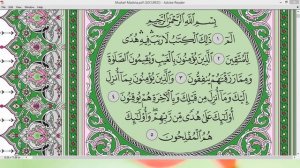 Mushaf Madina.pdf (SECURED) - Adobe Reader
بِسْمِ ٱللَّهِ ٱلرَّحْمَٰنِ ٱلرَّحِيمِ
الٓمٓ ١ ذَٰلِكَ ٱلْكِتَٰبُ لَا رَيْبَ فِيهِ هُدًى
لِّلْمُتَّقِينَ ٢ ٱلَّذِينَ يُؤْمِنُونَ بِٱلْغَيْبِ وَيُقِيمُونَ ٱلصَّلَوٰةَ
وَمِمَّا رَزَقْنَٰهُمْ يُنفِقُونَ ٣ وَٱلَّذِينَ يُؤْمِنُونَ بِمَآ أُنزِلَ
إِلَيْكَ وَمَآ أُنزِلَ مِن قَبْلِكَ وَبِٱلْءَاخِرَةِ هُمْ يُوقِنُونَ ٤
أُو۟لَٰٓئِكَ عَلَىٰ هُدًى مِّن رَّبِّهِمْ وَأُو۟لَٰٓئِكَ
هُمُ ٱلْمُفْلِحُونَ ٥